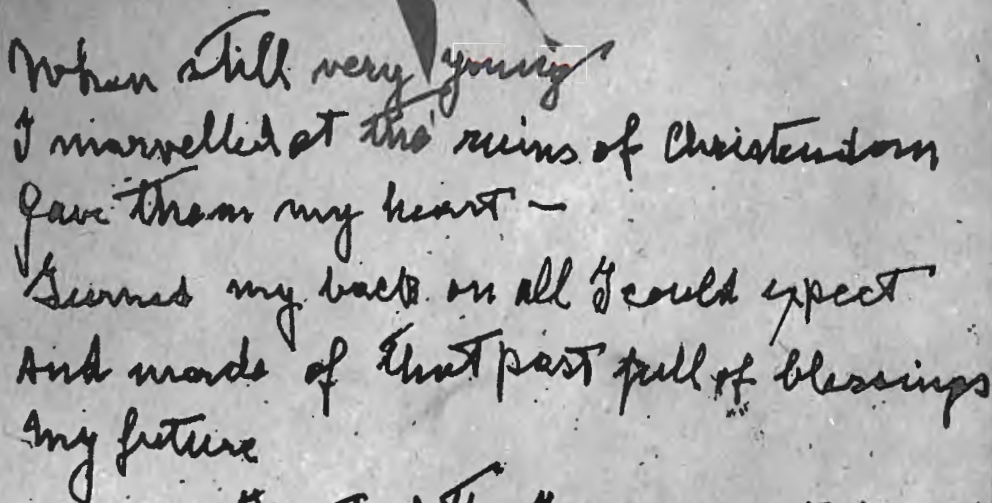 When still very young
I marvelled at the ruins of Christendom
Gave them my heart —
Turned my back on all I could expect
And made of that past full of blessings
My future